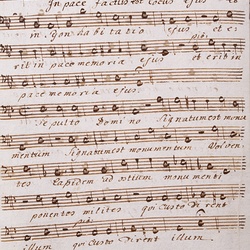 In pace factus est locus ejus et
in Syon habitatio ejus et e
rit in pace memoria ejus et erit in
pace memoria ejus
Sepulto Domino Signatum est monu
mentum Signatum est monumentum Volven
tes Lapidem ad ostium monumenti
ponentes milites qui Custodirent
illum qui Custodirent illum